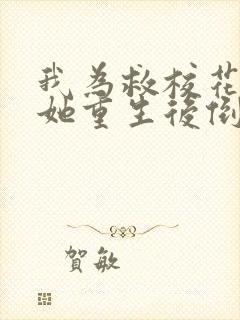 我為救校花
她重生後倒
賀敏